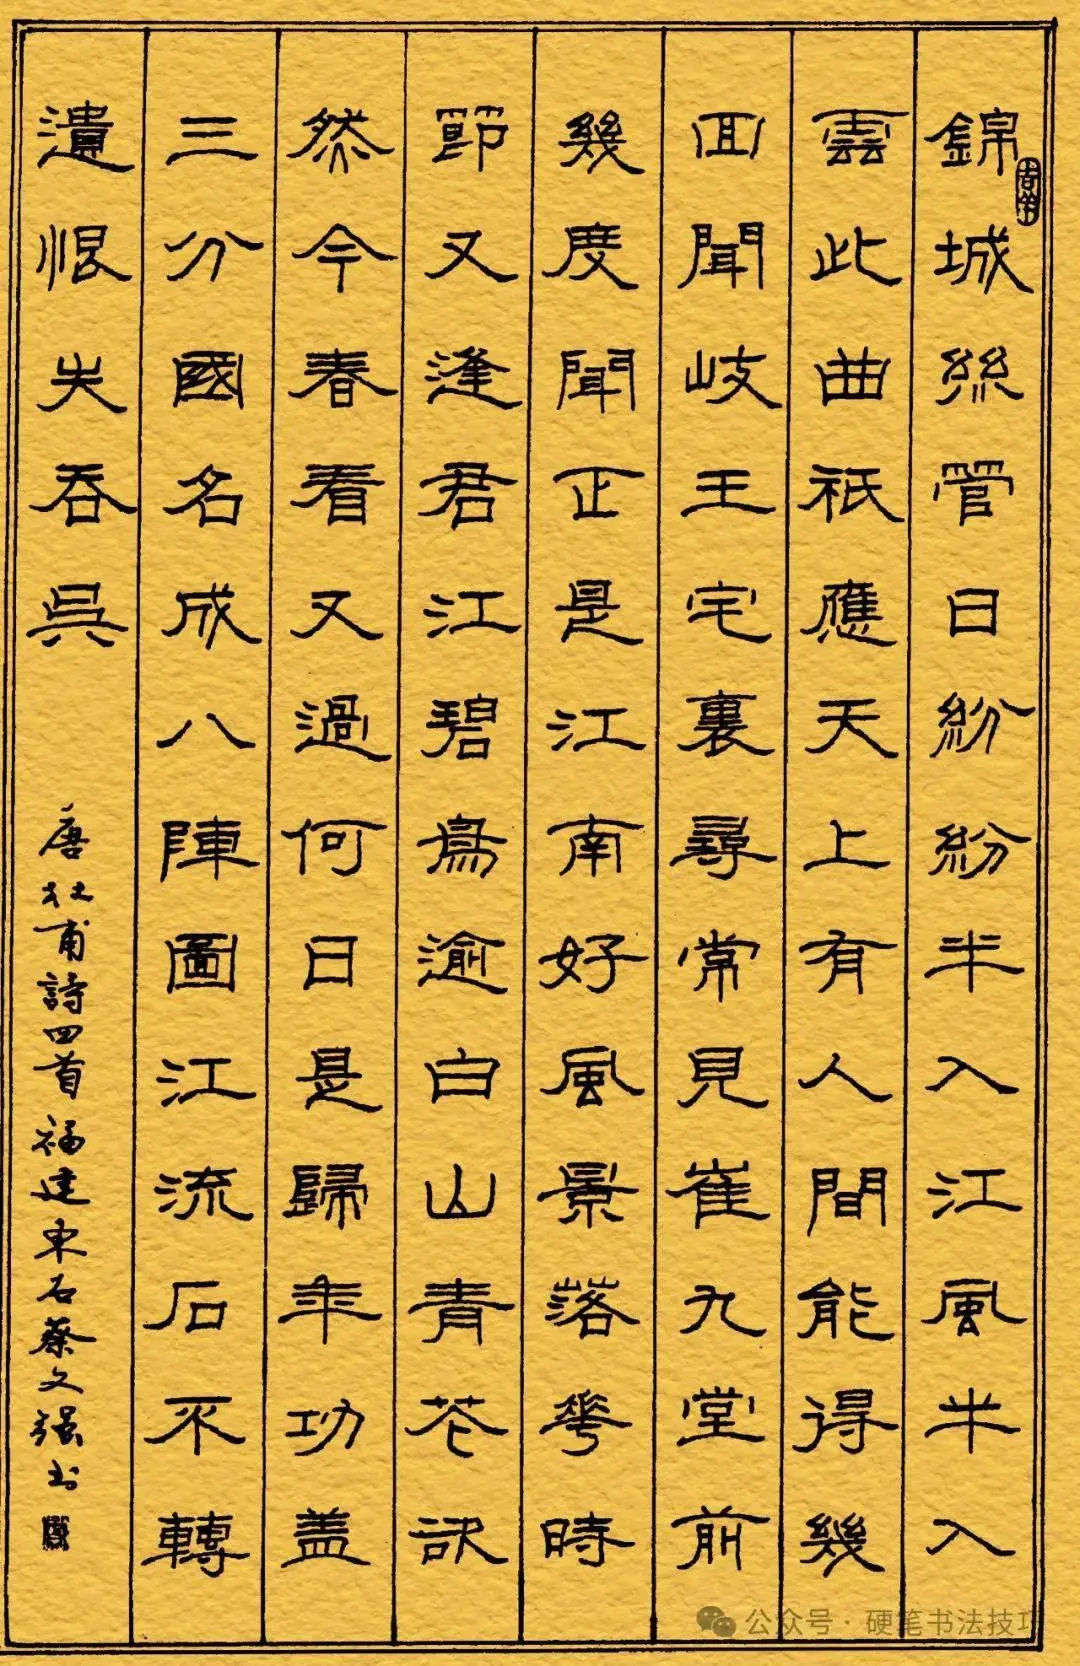 錦城絲管日紛紛半入江風半入
雲此曲祇應天上有人間能得幾
囬聞岐王宅裏尋常見崔九堂前
幾度聞正是江南好風景落華時
節又逢君江碧鳥逾白山青花欲
然今春看又過何日是歸年功盖
三分國名成八陣圖江流石不轉
遺恨失吞吳
唐杜甫詩四首福建東石蔡文强书
公众号·硬笔书法技巧